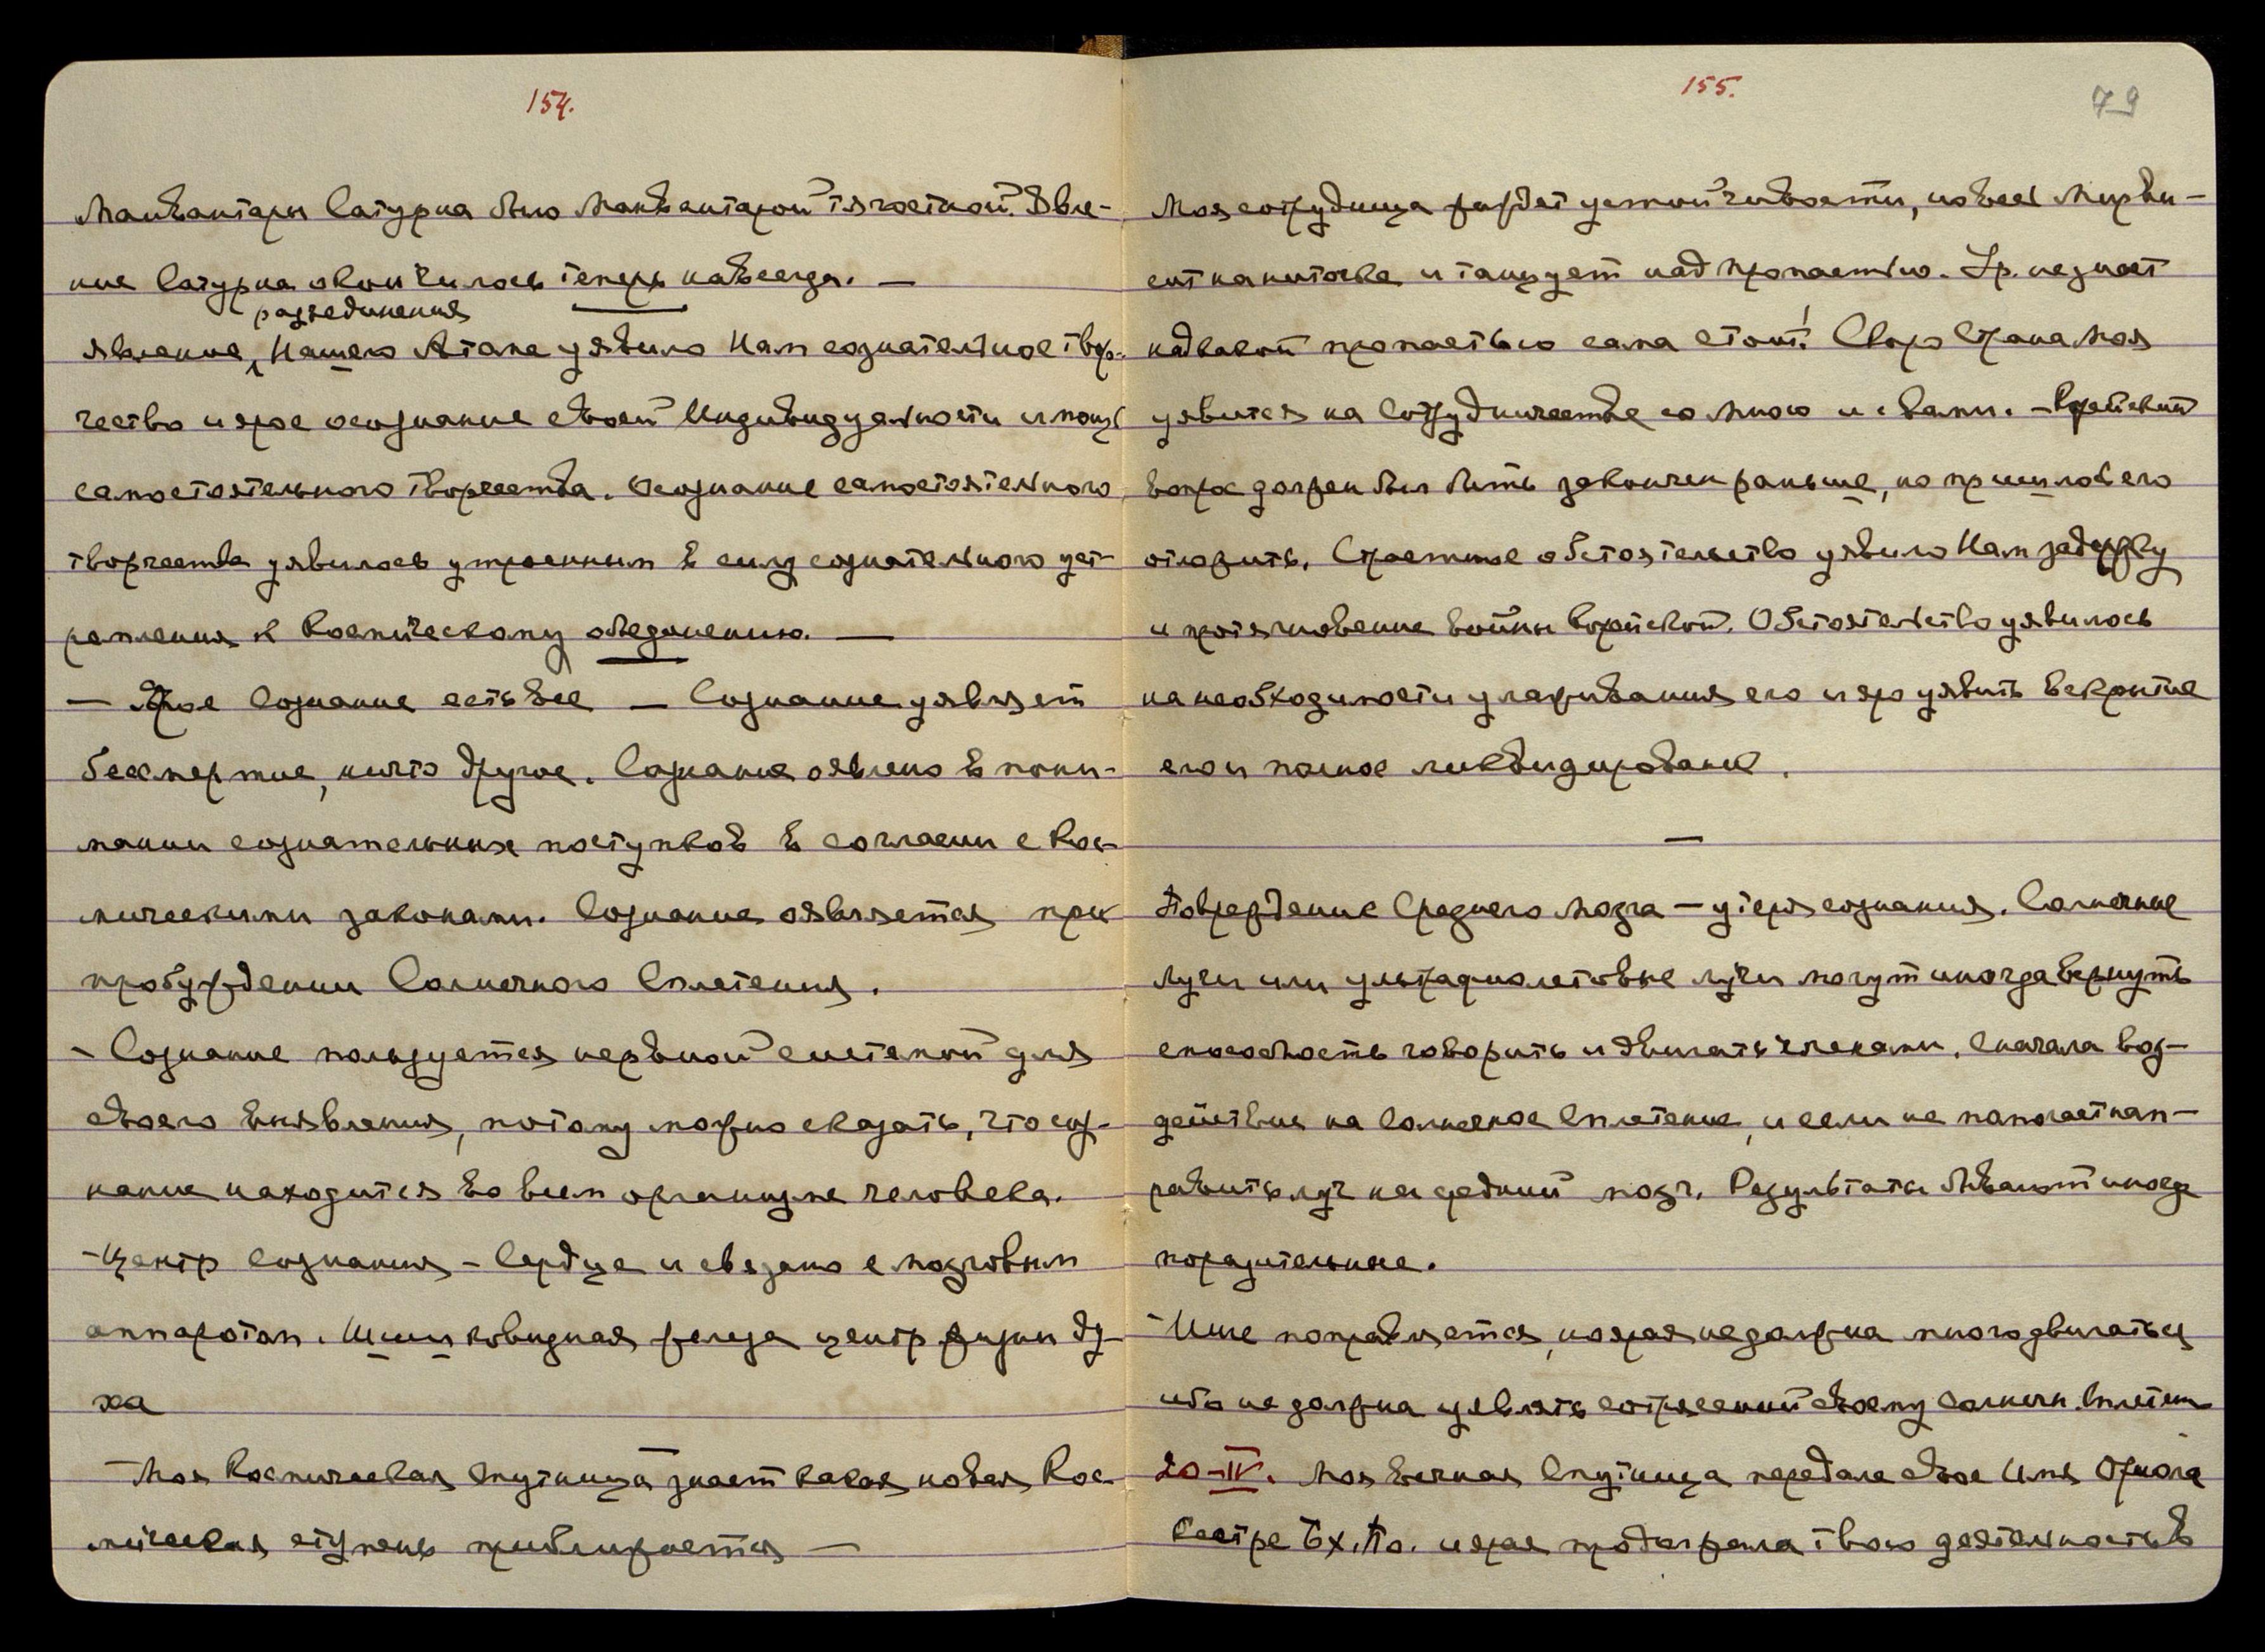 154.
Манвантары Сатурна было Манвантарой тягостной. Явле-
ние Сатурна окончилось теперь навсегда. —
разъединения
явление, Нашего Атома уявило Нам сознательное твор-
чество и ярое осознание своей Индивидуальности и мощь
самостоятельного творчества. Осознание самостоятельного
творчества уявилось утроенным в силу сознательного уст-
ремления к Космическому объединению. —
— Ярое Сознание есть все — Сознание уявляет
бессмертие, ничто другое. Сознание оявлено в пони-
мании сознательных поступков в согласии с Кос-
мическими законами. Сознание оявляется при
пробуждении Солнечного Сплетения.
- Сознание пользуется нервной системой для
своего выявления, потому можно сказать, что соз-
нание находится во всем организме человека.
- Центр Сознания - Сердце и связано с мозговым
аппаратом. Шишковидная железа центр жизни ду-
ха
- Моя Космическая Спутница знает какая новая Кос-
мическая ступень приближается —
155.
79
Моя сотрудница жаждет устойчивости, но весь Мир ви-
сит на ниточке и танцует над пропастью. Тр. не знает
над какой пропастью сама стоит! Скоро Страна Моя
уявится на Сотрудничестве со Мною и с вами. - Корейский
вопрос должен был быть закончен раньше, но пришлось его
отложить. Страстное обстоятельство уявило Нам задержку
и протяжновение войны Корейской. Обстоятельство уявилось
на необходимости улаживания его и яро уявить вскрытие
его и полное ликвидирование.
—
Повреждение Среднего Мозга — утеря сознания. Солнечные
лучи или ультрафиолетовые лучи могут иногда вернуть
способность говорить и двигать членами. Сначала воз-
действие на Солнечное Сплетение, и если не помогает нап-
равить луч на средний мозг. Результаты бывают иногда
поразительные.
- Илле поправляется, но ярая не должна много двигаться
ибо не должна уявлять сотрясений своему солнечн. сплетен
20-IV. Моя вечная Спутница передала свое Имя
Сестре и ярая продолжала твою деятельность в